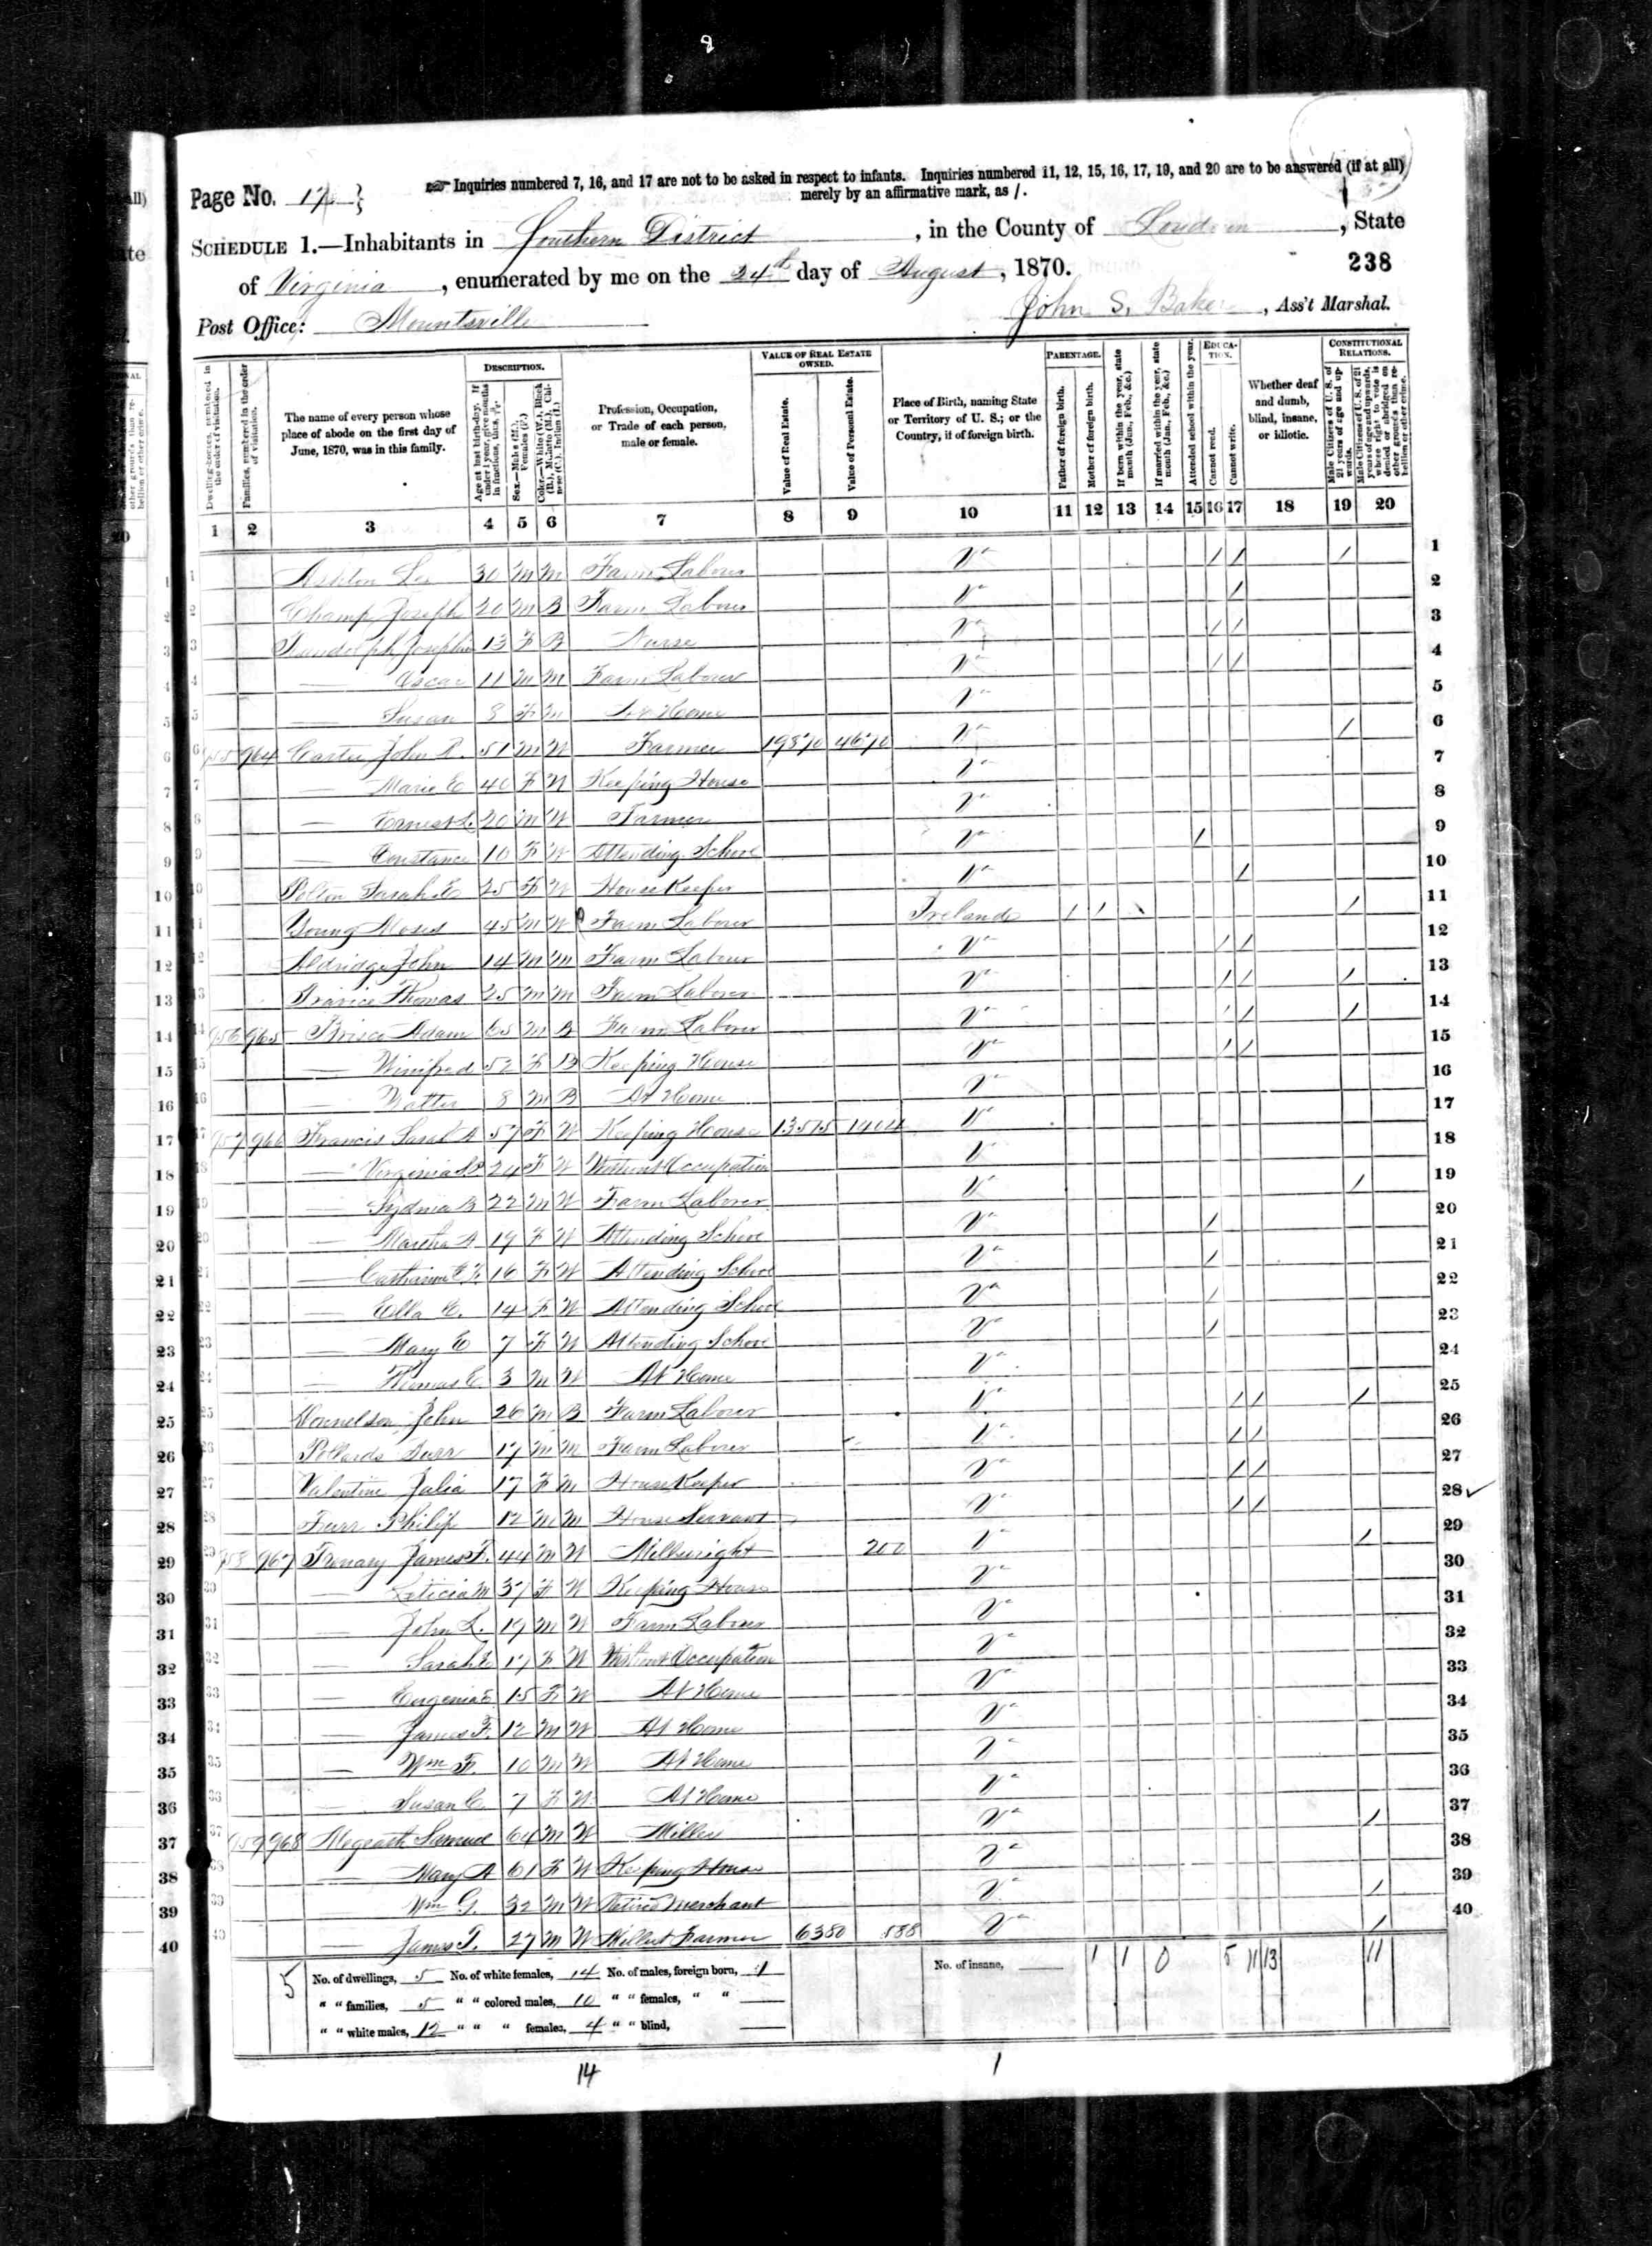 Page No. 17
Inquiries numbered 7, 16, and 17 are not to be asked in respect to infants. Inquiries numbered 11, 12, 15, 16, 17, 19, and 20 are to be answered (if at all)
merely by an affirmative mark, as /.
SCHEDULE 1.—Inhabitants in Southern District, in the County of Loudoun, State
of Virginia, enumerated by me on the 24th day of August, 1870.
238
Post Office: Mountsville
John S. Baker, Ass't Marshal.
Dwelling-houses, numbered in the order of visitation.
Families, numbered in the order of visitation.
The name of every person whose place of abode on the first day of June, 1870, was in this family.
DESCRIPTION.
Age at last birth-day. If under 1 year, give months in fractions, thus, 3/12.
Sex.—Males (M.), Females (F.)
Color.—White (W.), Black (B.), Mulatto (M.), Chinese (C.), Indian (I.)
Profession, Occupation, or Trade of each person, male or female.
VALUE OF REAL ESTATE OWNED.
Value of Real Estate.
Value of Personal Estate.
Place of Birth, naming State or Territory of U. S.; or the Country, if of foreign birth.
PARENTAGE.
Father of foreign birth.
Mother of foreign birth.
If born within the year, state month (Jan., Feb., &c.)
If married within the year, state month (Jan., Feb., &c.)
EDUCATION.
Attended school within the year.
Cannot read.
Cannot write.
Whether deaf and dumb, blind, insane, or idiotic.
CONSTITUTIONAL RELATIONS.
Male Citizens of U. S. of 21 years of age and upwards.
Male Citizens of U. S. of 21 years of age and upwards, where right to vote is denied or abridged on other grounds than rebellion or other crime.
1 2 3 4 5 6 7 8 9 10 11 12 13 14 15 16 17 18 19 20
1 Ashton 30 M M Farm Laborer Va / / /
2 Champ Joseph 20 M B Farm Laborer Va /
3 Randolph Josephine 13 F B Nurse Va / /
4 — Oscar 11 M M Farm Laborer Va / /
5 — Susan 8 F M At Home Va
6 955 964 Carter John R. 51 M W Farmer 19870 4670 Va /
7 — Marie E 40 F W Keeping House Va
8 — Ernest L. 20 M W Farmer Va
9 — Constance 10 F W Attending School Va /
10 Sarah E 25 F W House Keeper Va /
11 Young Moses 45 M W Farm Laborer Ireland / / /
12 Aldridge John 14 M M Farm Laborer Va / /
13 Thomas 25 M M Farm Laborer Va / / /
14 956 965 Brisco Adam 65 M B Farm Laborer Va / / /
15 — Winifred 52 F B Keeping House Va / /
16 — Walter 8 M B At Home Va
17 957 966 Francis Sarah A 57 F W Keeping House 13575 1404 Va
18 — Virginia 24 F W Without Occupation Va
19 — Sydnia B 22 M W Farm Laborer Va /
20 — Martha A 19 F W Attending School Va /
21 — Catharine E F. 16 F W Attending School Va /
22 — Ella E. 14 F W Attending School Va /
23 — Mary E 7 F W Attending School Va /
24 — Thomas E. 3 M W At Home Va
25 John 26 M B Farm Laborer Va / / /
26 Burr 17 M M Farm Laborer Va / /
27 Valentine Julia 17 F M House Keeper Va / /
28 Furr Philip 12 M M House Servant Va / /
29 958 967 Trenary James F. 44 M W Millwright 200 Va /
30 — Leticia M 37 F W Keeping House Va
31 — John L. 19 M W Farm Laborer Va
32 — Sarah E 17 F W Without Occupation Va
33 — Eugenia E 15 F W At Home Va
34 — James F. 12 M W At Home Va
35 — Wm F. 10 M W At Home Va
36 — Susan C. 7 F W At Home Va
37 959 968 Megeath Samuel 64 M W Miller Va /
38 — Mary A 61 F W Keeping House Va
39 — Wm G. 32 M W Retired Merchant Va /
40 — James T. 27 M W Miller & Farmer 6380 588 Va /
5 No. of dwellings, 5 No. of white females, 14 No. of males, foreign born, 1 No. of insane, 1 1 0 5 11 13 11
" " families, 5 " " colored males, 10 " " females, " "
" " white males, 12 " " " females, 4 " " blind,
14 1